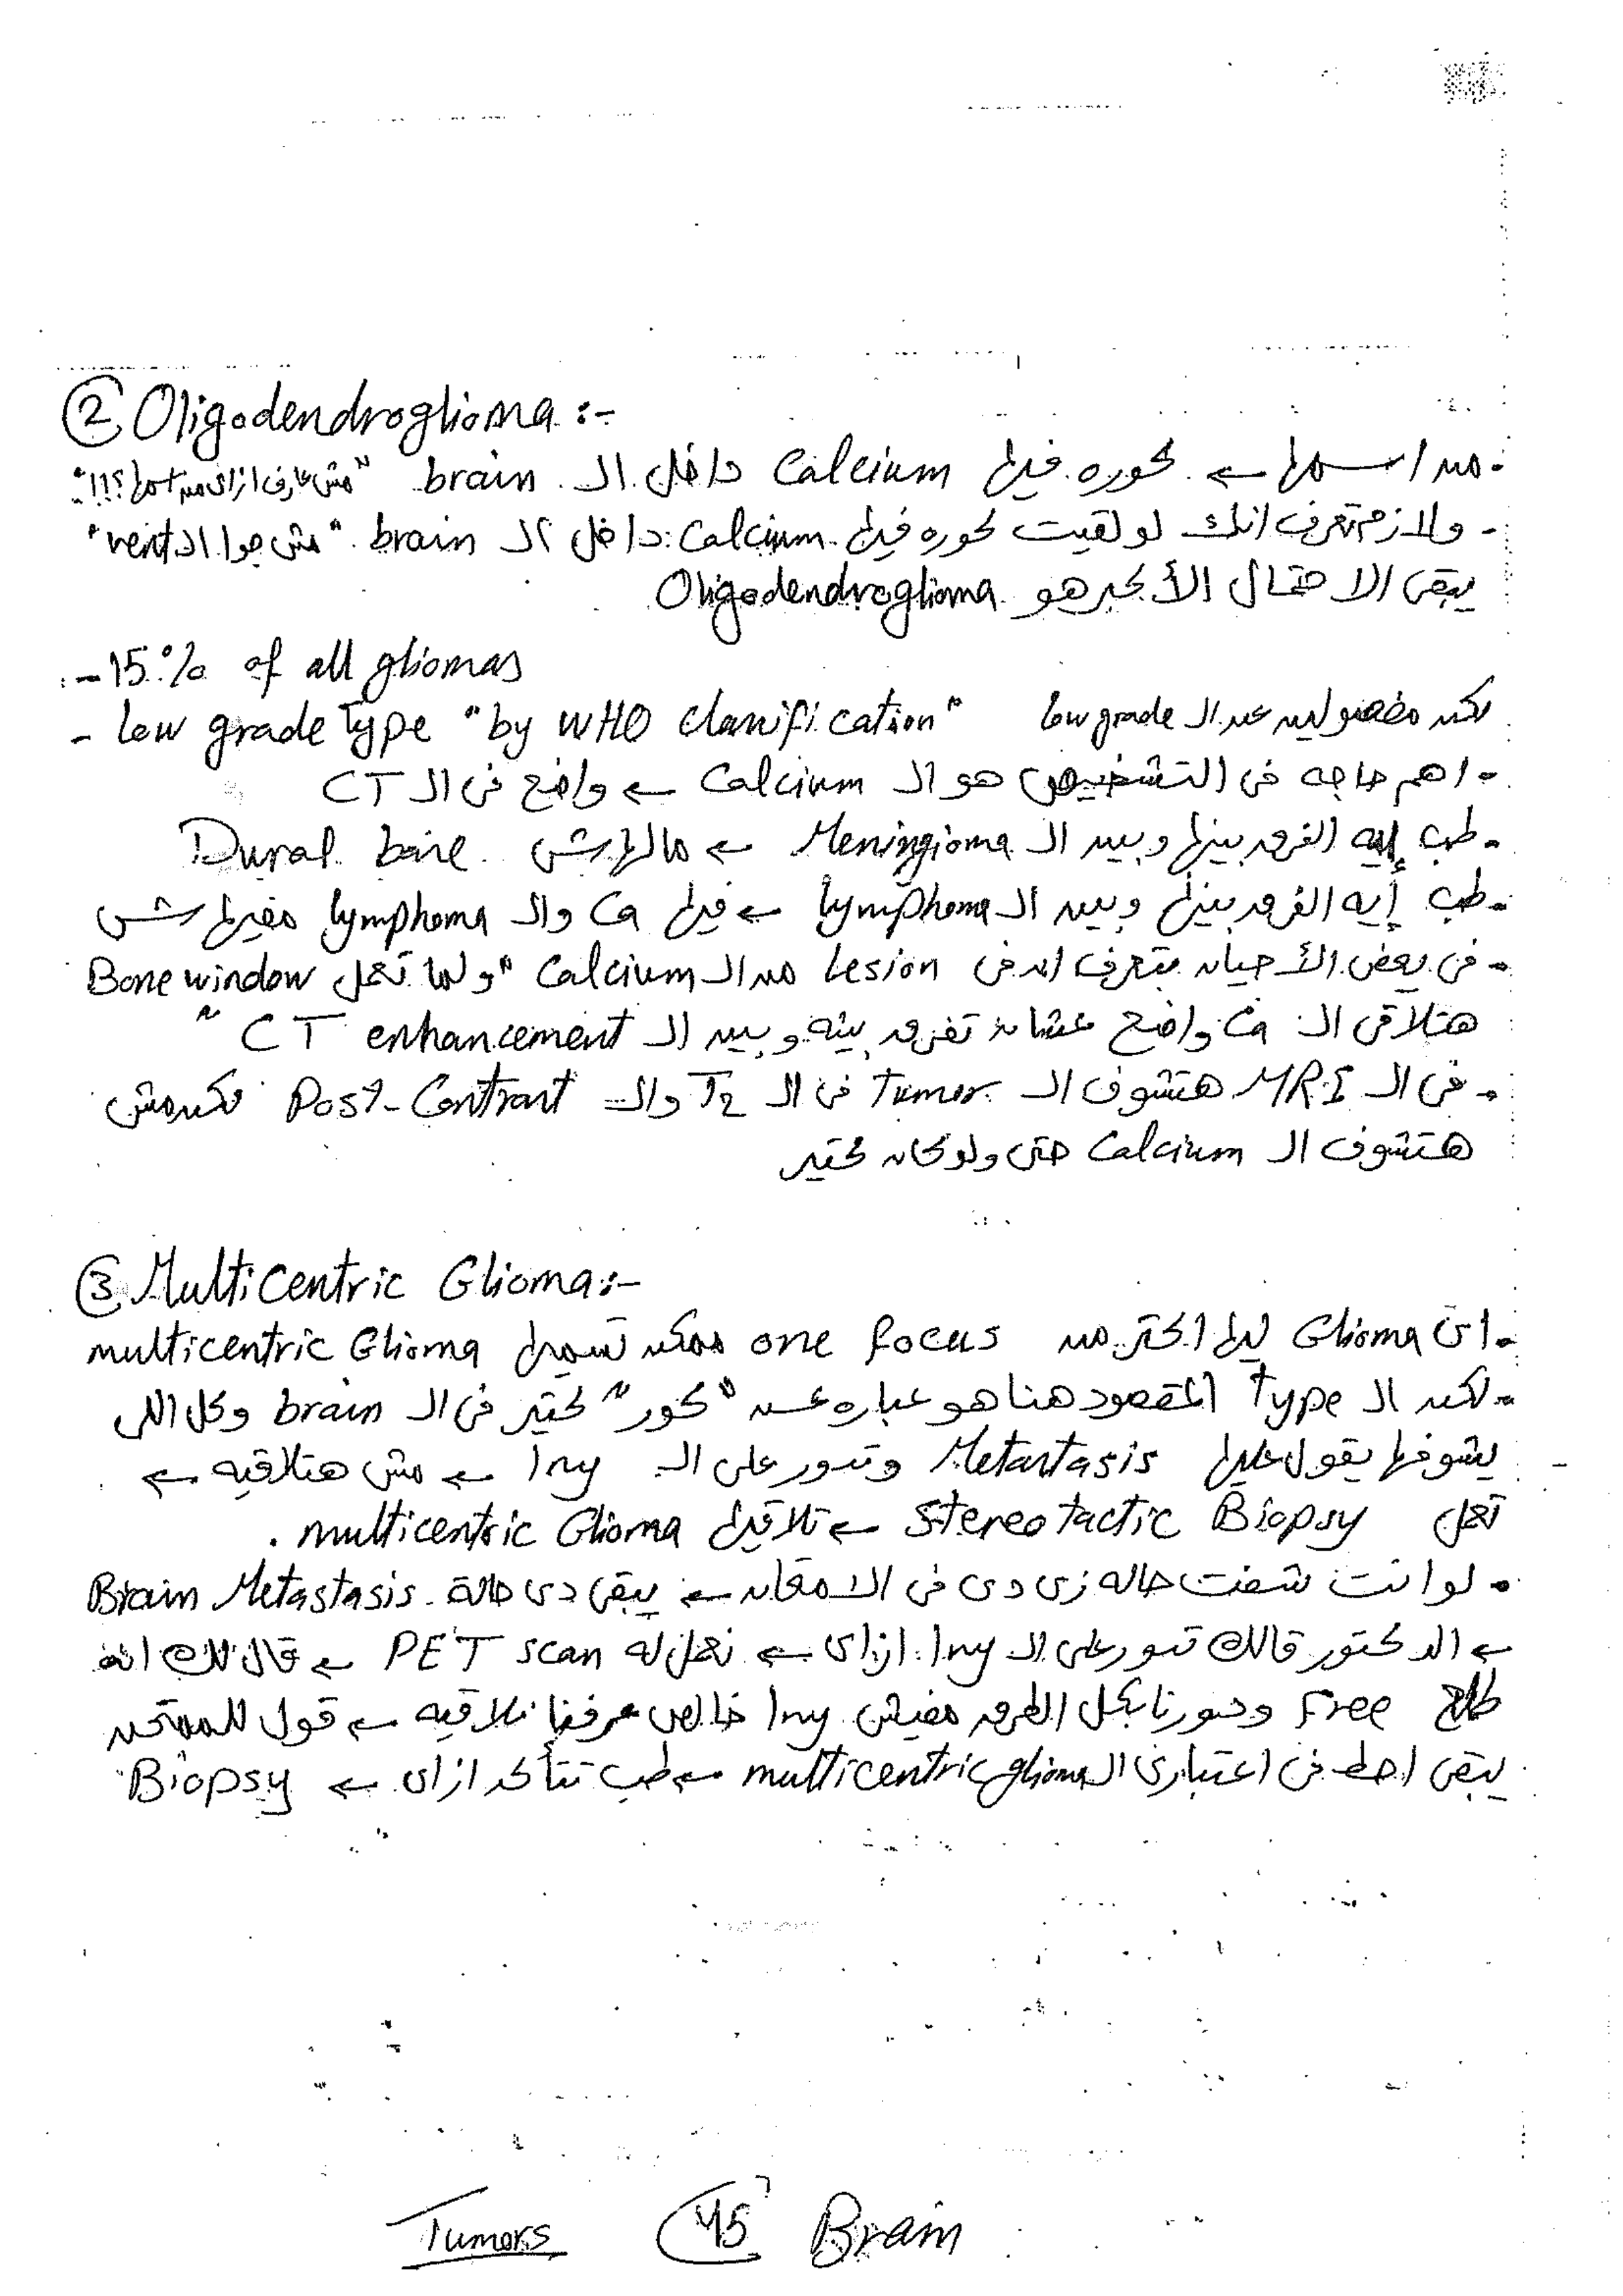 ② Oligodendroglioma :-
- من اسمها ← كوره فيها Calcium داخل الـ brain "مش عارف ازاى من اسمها؟!!"
- ولازم تعرف انك لو لقيت كوره فيها Calcium داخل الـ brain "مش جوا الـ vent"
يبقى الاحتمال الأكبر هو Oligodendroglioma
- 15% of all gliomas
- low grade type "by WHO classification" لكن مفصولين عن الـ low grade
- اهم حاجه فى التشخيص هو الـ Calcium ← واضح فى الـ CT
- طب إيه الفرق بينها وبين الـ Meningioma ← مالهاش Dural base
- طب إيه الفرق بينها وبين الـ lymphoma ← فيها Ca والـ lymphoma مفيهاش
- فى بعض الأحيان بتعرف ان فى Lesion من الـ Calcium "ولما تعمل Bone window
هتلاقى الـ Ca واضح عشان تفرق بينه وبين الـ CT enhancement"
- فى الـ MRI هتشوف الـ Tumor فى الـ T2 والـ Post-Contrast لكن مش
هتشوف الـ Calcium حتى ولو كان كتير
③ MultiCentric Glioma :-
- اى Glioma ليها اكتر من one focus ممكن تسميها multicentric Glioma
- لكن الـ Type المقصود هنا هو عباره عن "كور" كتير فى الـ brain وكل اللى
يشوفها يقول عليها Metastasis وتدور على الـ 1ry ← مش هتلاقيه ←
تعمل Stereotactic Biopsy ← تلاقيها multicentric Glioma.
- لو انت شفت حاله زى دى فى الامتحان ← يبقى دى حالة Brain Metastasis
← الدكتور قالك تدور على الـ 1ry ازاى ← نعمل له PET scan ← قال لك انه
طلع Free ودورنا بكل الطرق مفيش 1ry خالص عرفنا نلاقيه ← قول للممتحن
يبقى احط فى اعتبارى الـ multicentric glioma ← طب تتأكد ازاى ← Biopsy
Tumors 45 Brain